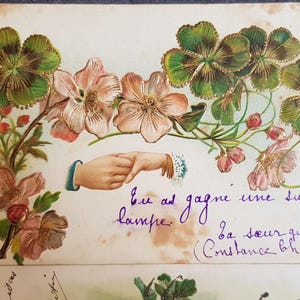 Tu as gagné une su
lampe.
Ta sœur qu
(Constance Ch